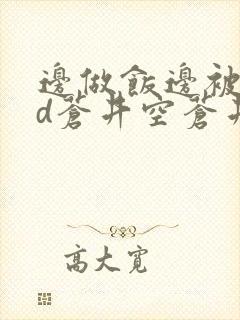 邊做飯邊被
d蒼井空蒼井
高大寬